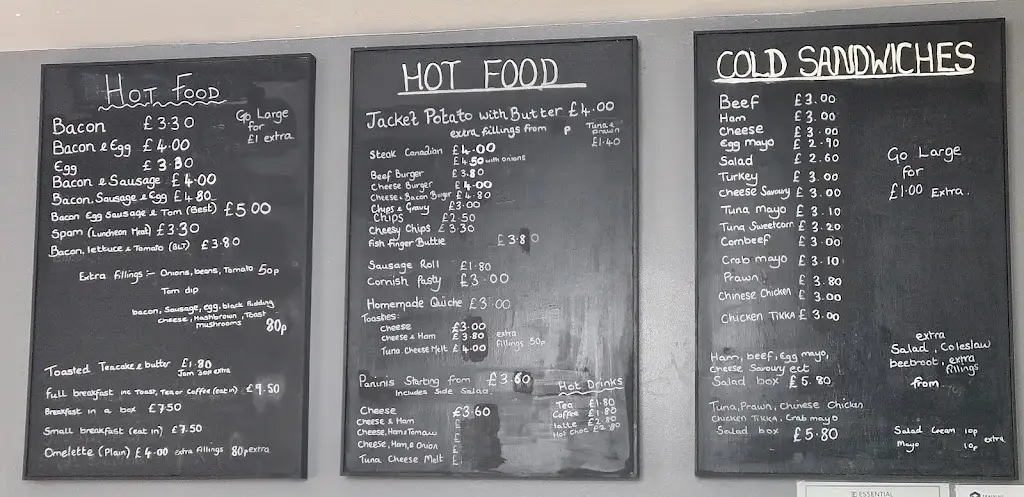 HOT FOOD
Go Large
for
£1 extra
Bacon £3.30
Bacon & Egg £4.00
Egg £3.80
Bacon & Sausage £4.00
Bacon, Sausage & Egg £4.80
Bacon Egg Sausage & Tom (Best) £5.00
Spam (Luncheon Meat) £3.30
Bacon, lettuce & Tomato (BLT) £3.80
Extra fillings :- Onions, beans, Tomato 50p
Tom dip
bacon, Sausage, egg, black Pudding
cheese, Hashbrown, Toast
mushrooms 80p
Toasted Teacake & butter £1.80
Jam 30p extra
Full breakfast inc Toast, Tea or Coffee (eat in) £9.50
Breakfast in a box £7.50
Small breakfast (eat in) £7.50
Omelette (Plain) £4.00 extra fillings 80p extra
HOT FOOD
Jacket Potato with Butter £4.00
extra fillings from p Tuna &
Prawn
£1.40
Steak Canadian £4.00
£4.50 with onions
Beef Burger £3.80
Cheese Burger £4.00
Cheese & Bacon Burger £4.80
Chips & Gravy £3.00
Chips £2.50
Cheesy Chips £3.30
Fish finger Buttie £3.80
Sausage Roll £1.80
Cornish Pasty £3.00
Homemade Quiche £3.00
Toashes:
Cheese £3.00
Cheese & Ham £3.80
extra
fillings 50p
Tuna Cheese Melt £4.00
Paninis Starting from £3.60
Includes Side Salad
Cheese £3.60
Cheese & Ham £
Cheese, Ham & Tomato £
Cheese, Ham & Onion £
Tuna Cheese Melt £
Hot Drinks
Tea £1.80
Coffee £1.80
latte £2.80
Hot Choc £2.80
COLD SANDWICHES
Beef £3.00
Ham £3.00
Cheese £3.00
Egg mayo £2.90
Salad £2.60
Turkey £3.00
Cheese Savoury £3.00
Tuna mayo £3.10
Tuna Sweetcorn £3.20
Cornbeef £3.00
Crab mayo £3.10
Prawn £3.80
Chinese Chicken £3.00
Chicken TIKKA £3.00
Go Large
for
£1.00 Extra.
Ham, beef, Egg mayo,
Cheese Savoury ect
Salad box £5.80
Tuna, Prawn, Chinese Chicken
Chicken TIKKA, Crab mayo
Salad box £5.80
extra
Salad, Coleslaw
beetroot, extra
fillings
from
Salad Cream 10p
Mayo 10p extra
ESSENTIAL